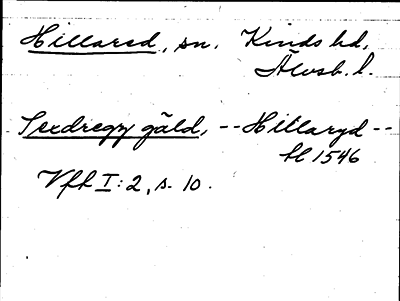 Hillared, sn. Kinds hd,
Älvsb. l.
Sexdregz gäld, -- Hillaryd --
hl 1546
Vfh I:2, s. 10.